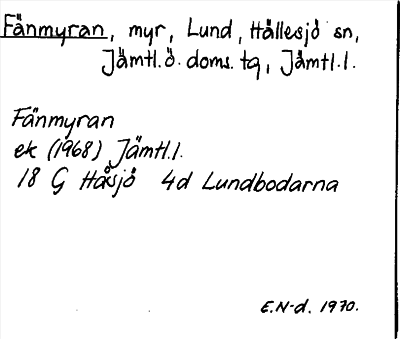 Fänmyran, myr, Lund, Hållesjö sn,
Jämtl.ö. doms. tg, Jämtl.l.
Fänmyran
ek (1968) Jämtl.l.
18 G Håsjö 4d Lundbodarna
E.N-d. 1970.